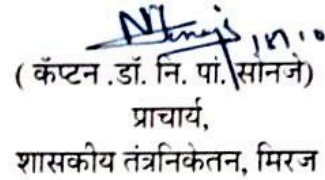 ( कॅप्टन .डॉ. नि. पां. सोनजे)
प्राचार्य,
शासकीय तंत्रनिकेतन, मिरज